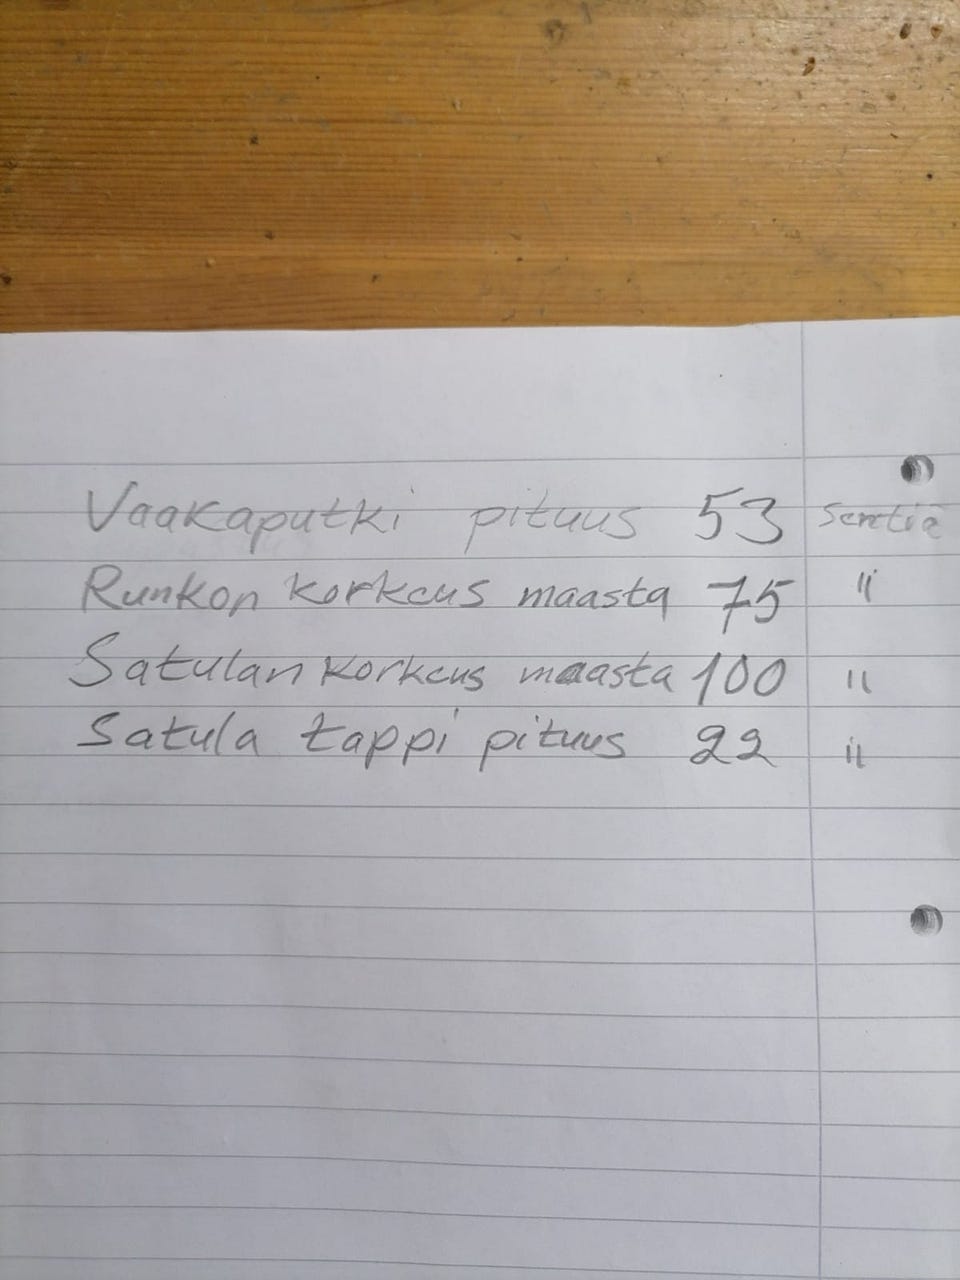 Vaakaputki pituus 53 sentiä
Runkon korkeus maasta 75 "
Satulan korkeus maasta 100 "
Satula tappi pituus 22 "